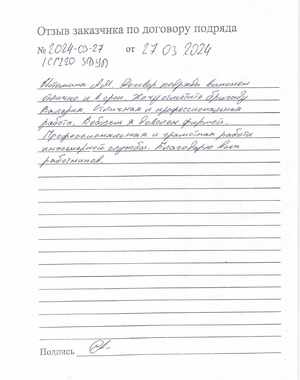 Отзыв заказчика по договору подряда
№ 2024-03-27 от 27 03 2024
Договор подряда выполнен
отлично и в срок. Хочу отметить бригаду
Валерия. Отличная и профессиональная
работа. Вобщем я доволен фирмой.
Профессиональная и грамотная работа
инженерной службы. Благодарю всех
работников.
Подпись